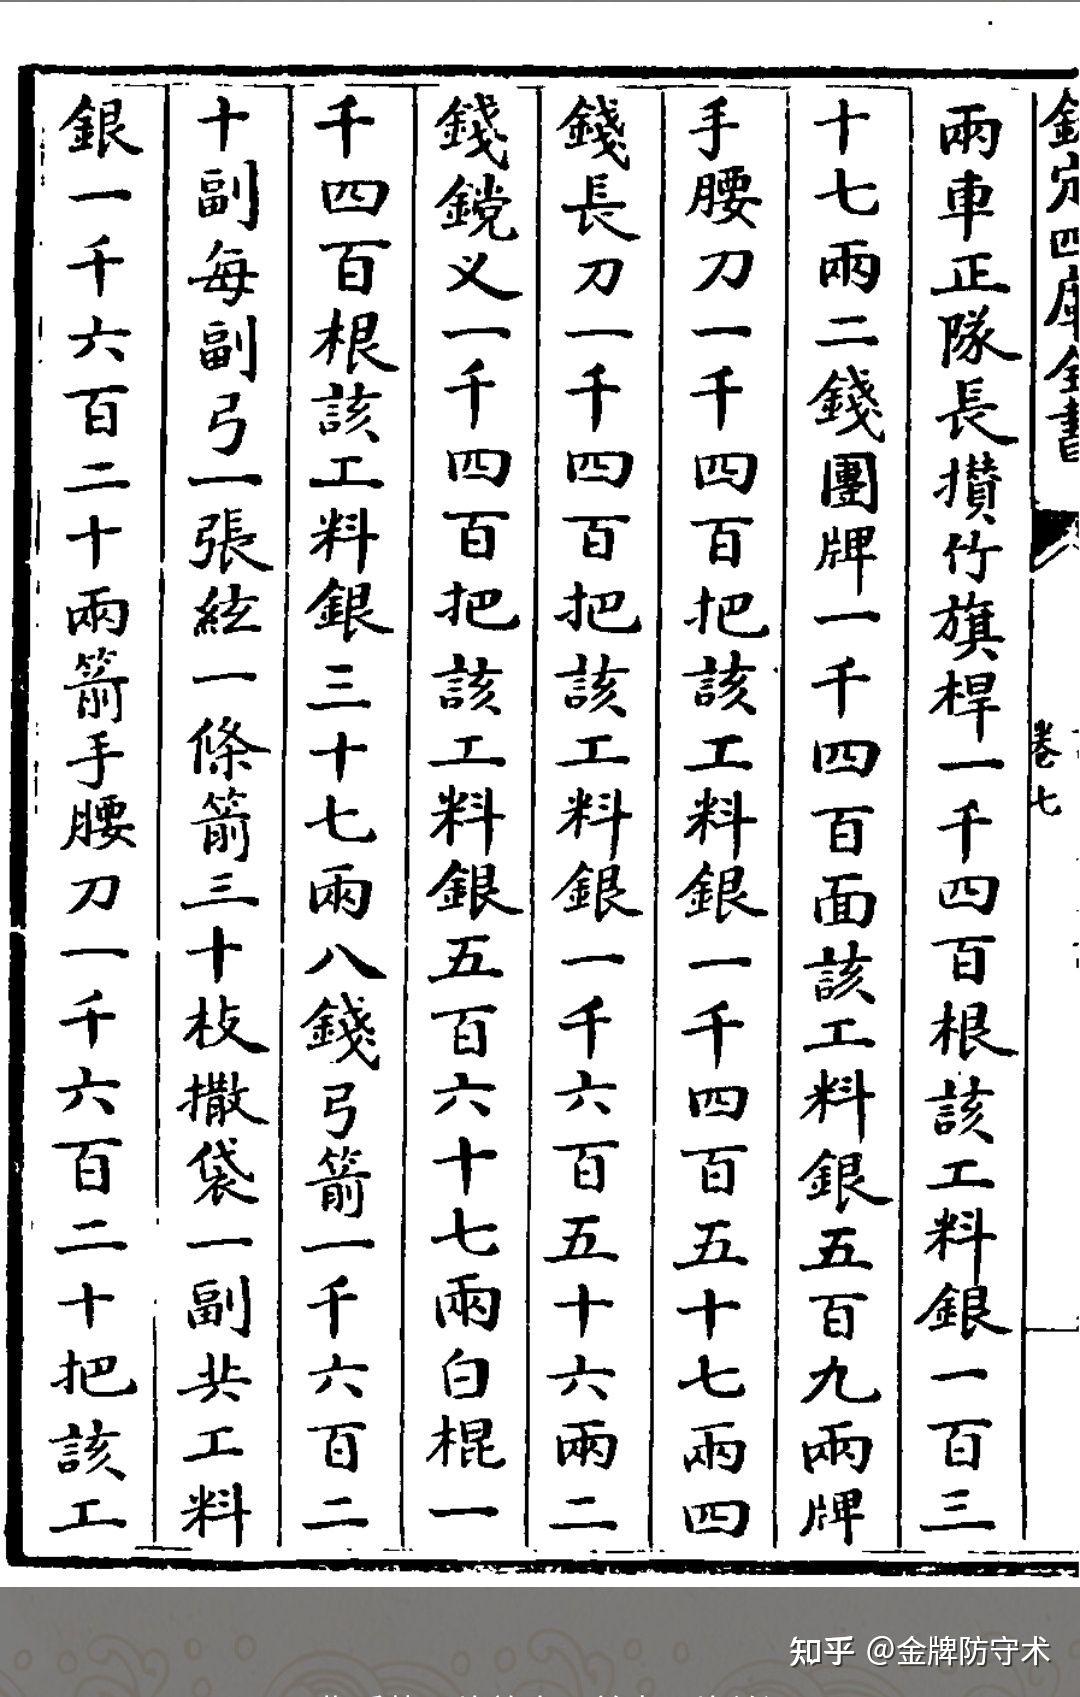 欽定四庫全書
卷七
兩車正隊長攅竹旗桿一千四百根該工料銀一百三
十七兩二錢團牌一千四百面該工料銀五百九兩牌
手腰刀一千四百把該工料銀一千四百五十七兩四
錢長刀一千四百把該工料銀一千六百五十六兩二
錢鎲义一千四百把該工料銀五百六十七兩白棍一
千四百根該工料銀三十七兩八錢弓箭一千六百二
十副每副弓一張絃一條箭三十枝撒袋一副共工料
銀一千六百二十兩箭手腰刀一千六百二十把該工
知乎 @金牌防守术